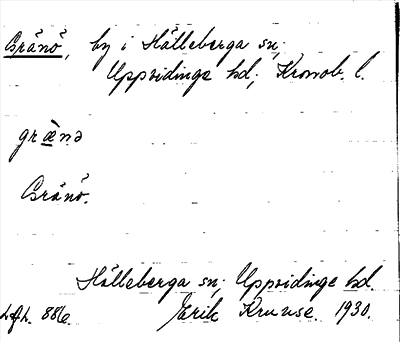 Gränö, by i Hälleberga sn;
Uppvidinge hd; Kronob. l.
grænə
Gränö.
Hälleberga sn; Uppvidinge hd.
Erik Kruuse. 1930.
886.